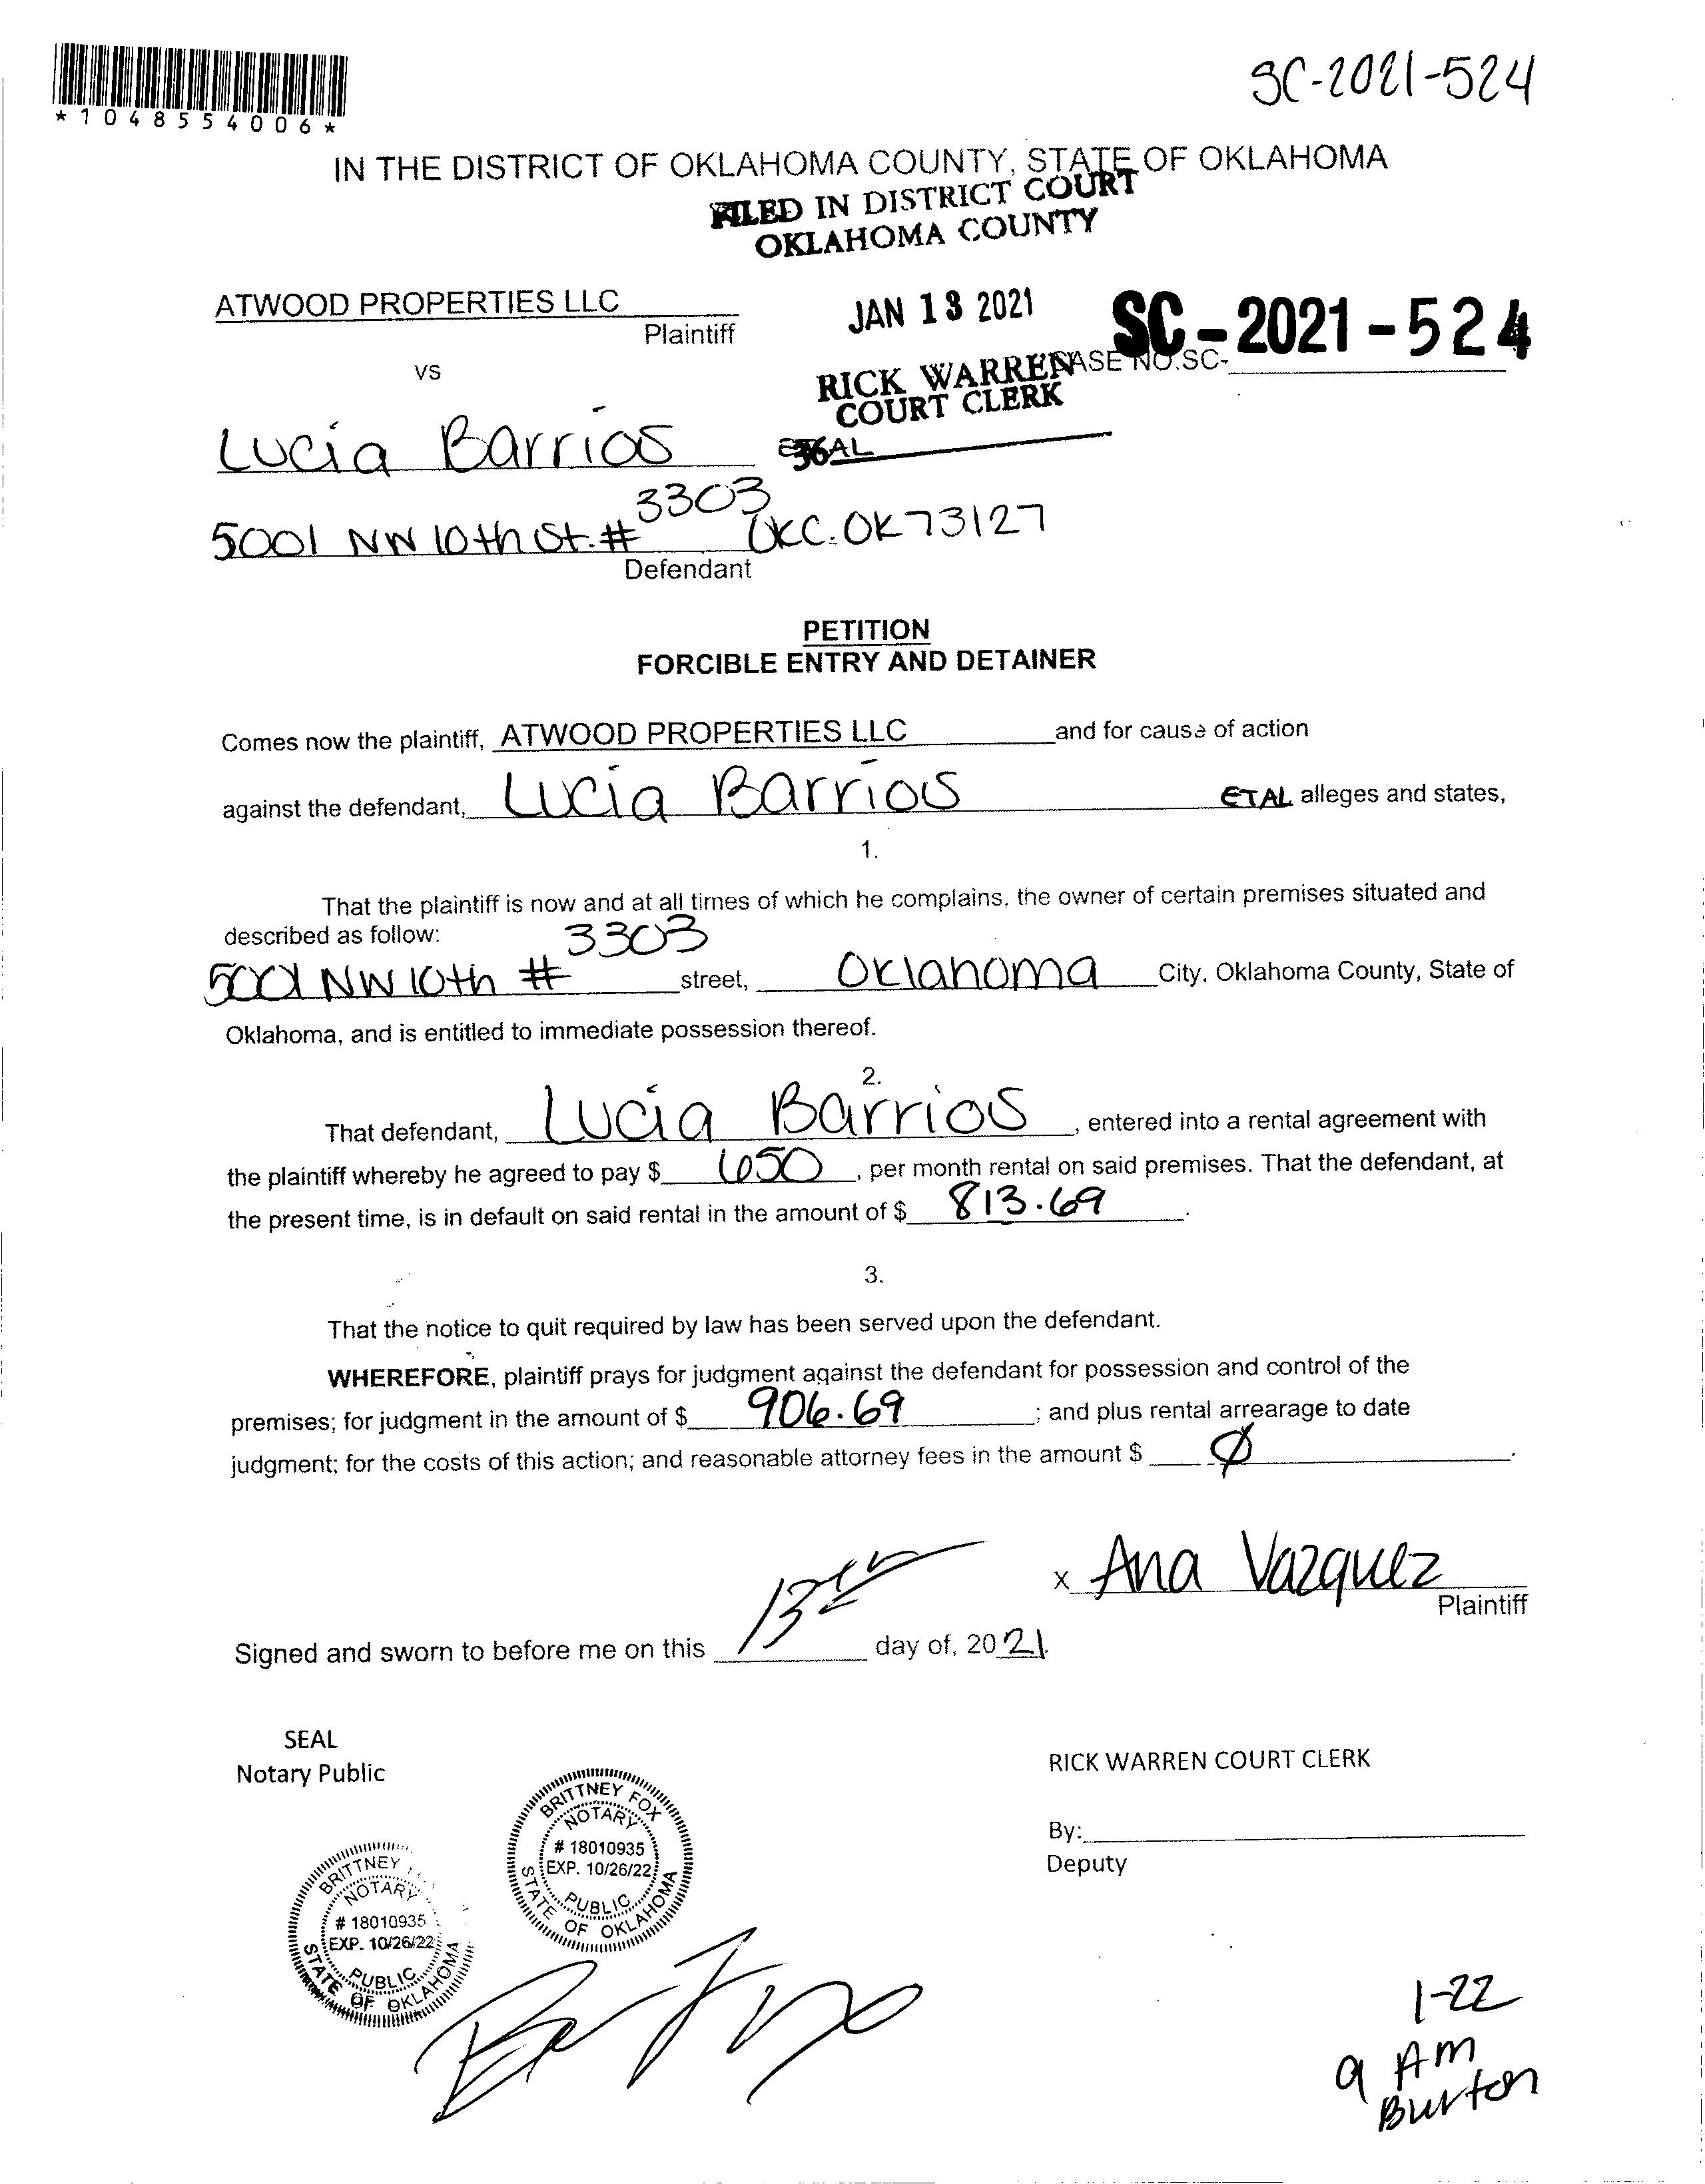 SC-2021-524
*1048554006*
IN THE DISTRICT OF OKLAHOMA COUNTY, STATE OF OKLAHOMA
FILED IN DISTRICT COURT
OKLAHOMA COUNTY
ATWOOD PROPERTIES LLC
Plaintiff
JAN 13 2021
SC-2021-524
vs
RICK WARREN
COURT CLERK
CASE NO.SC-
Lucia Barrios
ETAL
36
5001 NW 10th St. # 3303 OKC. OK 73127
Defendant
PETITION
FORCIBLE ENTRY AND DETAINER
Comes now the plaintiff, ATWOOD PROPERTIES LLC and for cause of action
against the defendant, Lucia Barrios ETAL alleges and states,
1.
That the plaintiff is now and at all times of which he complains, the owner of certain premises situated and
described as follow:
5001 NW 10th # 3303 street, Oklahoma City, Oklahoma County, State of
Oklahoma, and is entitled to immediate possession thereof.
2.
That defendant, Lucia Barrios, entered into a rental agreement with
the plaintiff whereby he agreed to pay $ 650, per month rental on said premises. That the defendant, at
the present time, is in default on said rental in the amount of $ 813.69.
3.
That the notice to quit required by law has been served upon the defendant.
WHEREFORE, plaintiff prays for judgment against the defendant for possession and control of the
premises; for judgment in the amount of $ 906.69; and plus rental arrearage to date
judgment; for the costs of this action; and reasonable attorney fees in the amount $ Ø.
x Ana Vazquez
Plaintiff
Signed and sworn to before me on this 13th day of, 2021.
SEAL
Notary Public
RICK WARREN COURT CLERK
BRITTNEY FOX
NOTARY
# 18010935
EXP. 10/26/22
PUBLIC
STATE OF OKLAHOMA
By:
Deputy
BRITTNEY
NOTARY
# 18010935
EXP. 10/26/22
PUBLIC
STATE OF OKLAHOMA
1-22
9 AM
Burton